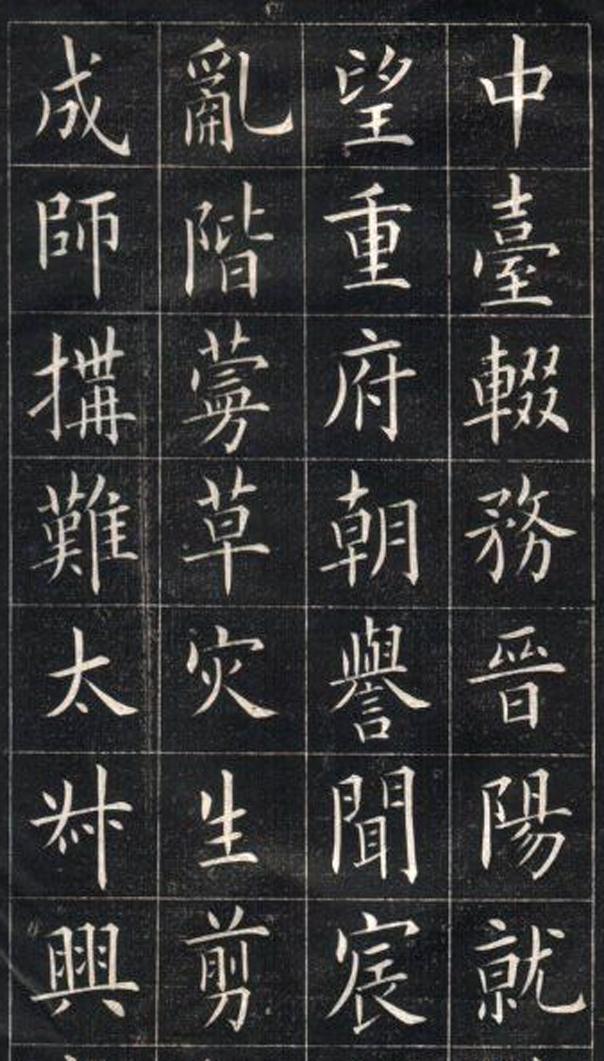 中臺輟務晉陽就
望重府朝譽聞宸
亂階蓇草灾生剪
成師搆難太叔興